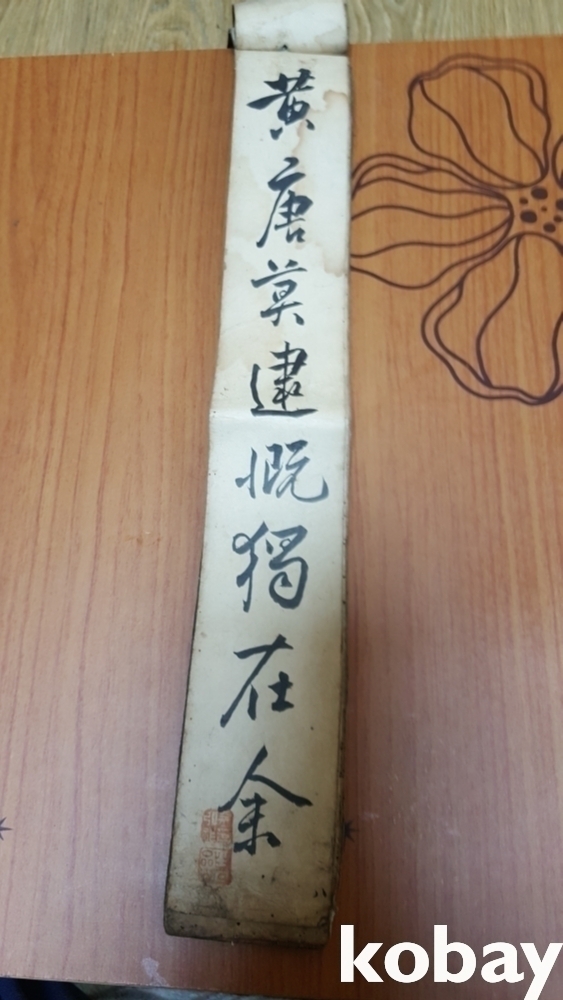 黄唐莫逮慨獨在余
kobay